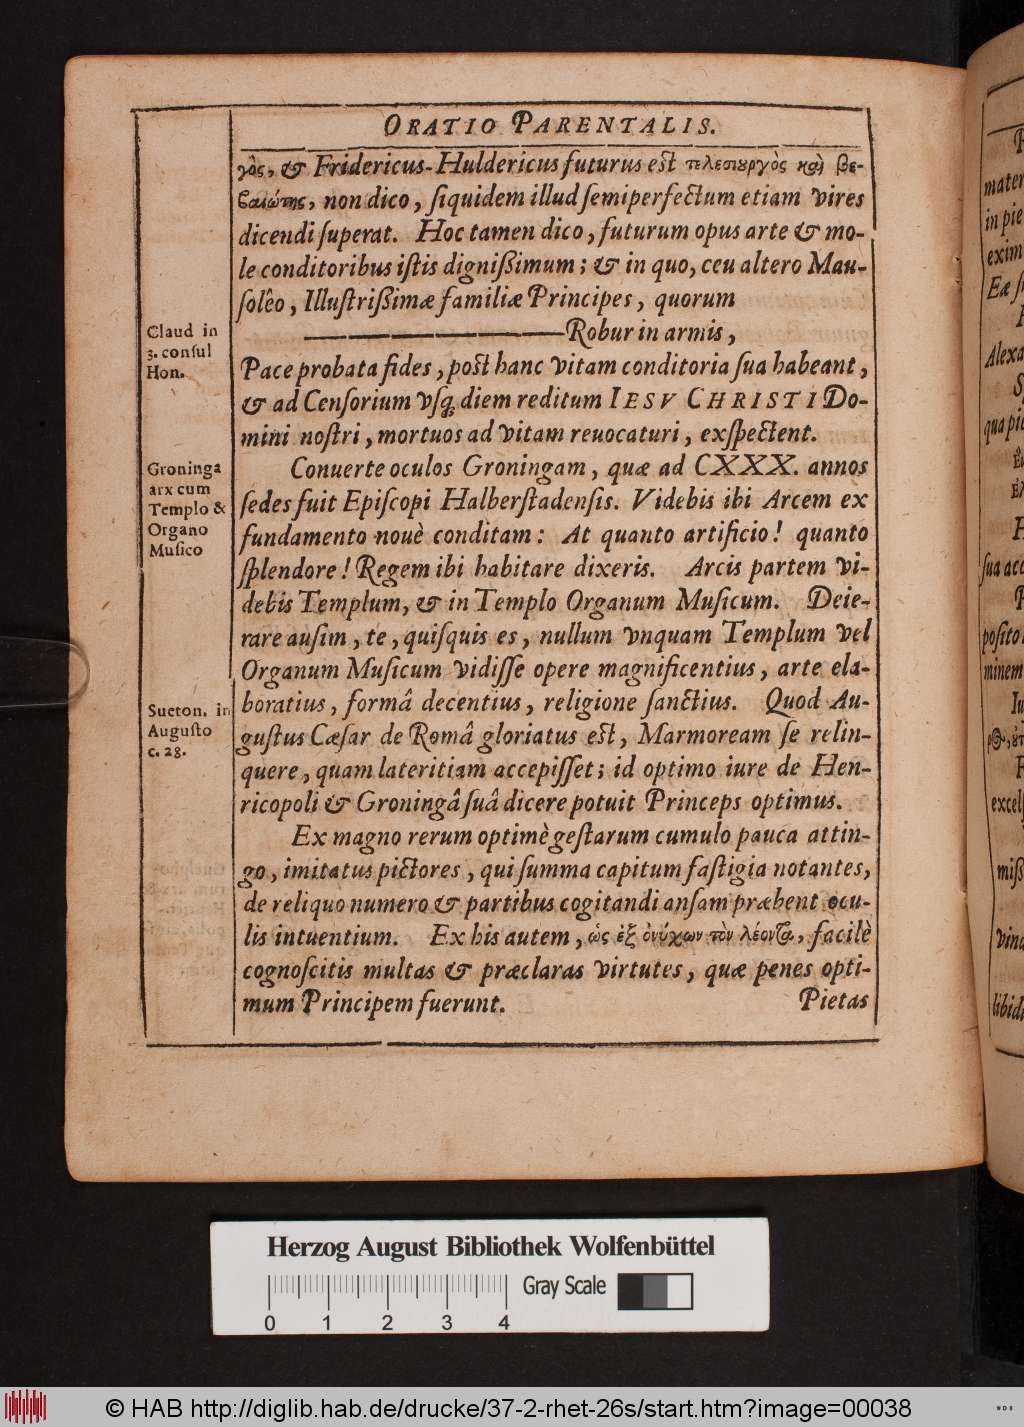 ORATIO PARENTALIS.
γὸς, & Fridericus-Huldericus futurus eſt τελεσιουργὸς καὶ βε-
βαιώτης, non dico, ſiquidem illud ſemiperfectum etiam vires
dicendi ſuperat. Hoc tamen dico, futurum opus arte & mo-
le conditoribus iſtis digniſſimum; & in quo, ceu altero Mau-
ſolêo, Illuſtriſſimæ familiæ Principes, quorum
Claud in
3. conſul
Hon.
——————Robur in armis,
Pace probata fides, poſt hanc vitam conditoria ſua habeant,
& ad Cenſorium vſq; diem reditum IESV CHRISTI Do-
mini noſtri, mortuos ad vitam reuocaturi, exſpectent.
Groninga
arx cum
Templo &
Organo
Muſico
Conuerte oculos Groningam, quæ ad CXXX. annos
ſedes fuit Epiſcopi Halberſtadenſis. Videbis ibi Arcem ex
fundamento nouè conditam: At quanto artificio! quanto
ſplendore! Regem ibi habitare dixeris. Arcis partem vi-
debis Templum, & in Templo Organum Muſicum. Deie-
rare auſim, te, quiſquis es, nullum vnquam Templum vel
Organum Muſicum vidiſſe opere magnificentius, arte ela-
boratius, formâ decentius, religione ſanctius. Quod Au-
Sueton. in
Auguſto
c. 28.
guſtus Cæſar de Româ gloriatus eſt, Marmoream ſe relin-
quere, quam lateritiam accepiſſet; id optimo iure de Hen-
ricopoli & Groningâ ſuâ dicere potuit Princeps optimus.
Ex magno rerum optimè geſtarum cumulo pauca attin-
go, imitatus pictores, qui ſumma capitum faſtigia notantes,
de reliquo numero & partibus cogitandi anſam præbent ocu-
lis intuentium. Ex his autem, ὡς ἐξ ὀνύχων τὸν λέοντα, facilè
cognoſcitis multas & præclaras virtutes, quæ penes opti-
mum Principem fuerunt. Pietas
mater
in pie
exim
Alexa
qua pie
ſua acc
poſito
minem
excelſ
miſſ
vind
libid
Herzog August Bibliothek Wolfenbüttel
Gray Scale
0 1 2 3 4
© HAB http://diglib.hab.de/drucke/37-2-rhet-26s/start.htm?image=00038